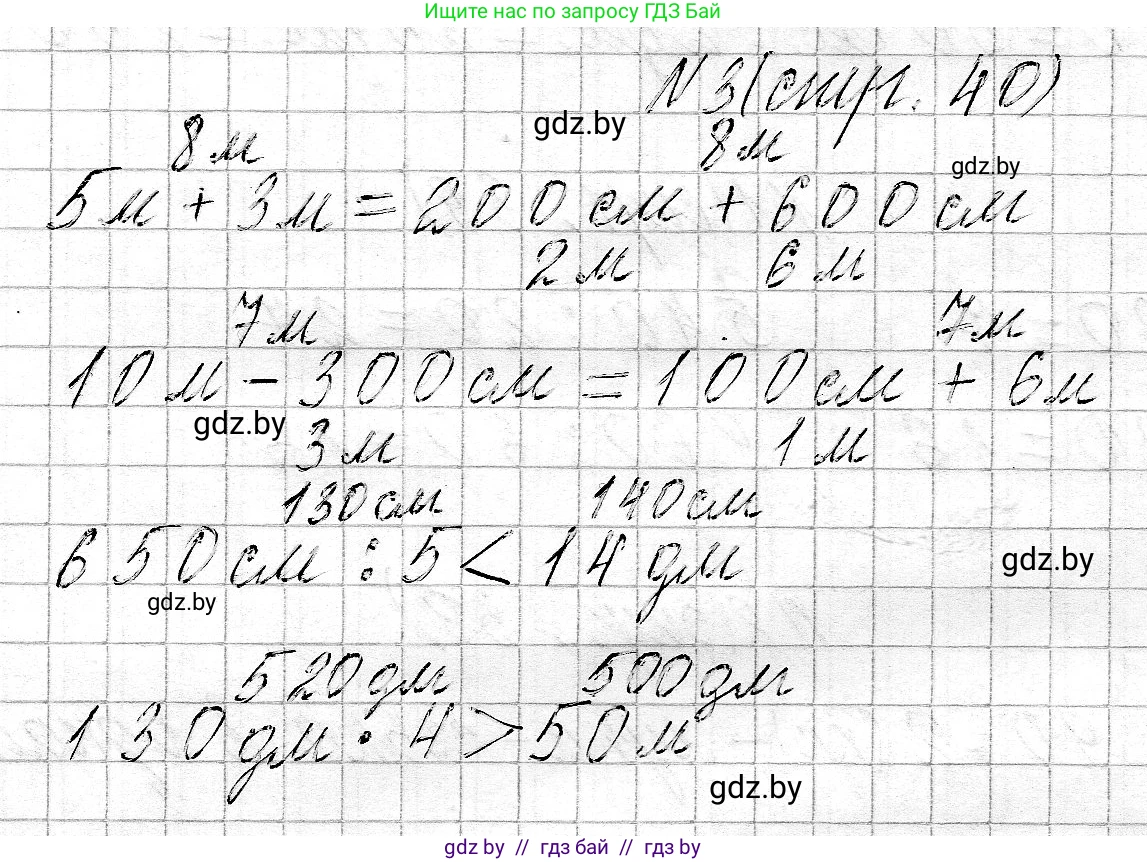 Ищите нас по запросу ГДЗ Бай
N 3 (стр. 40)
gdz.by
8 м 8 м
gdz.by
5 м + 3 м = 200 см + 600 см
2 м 6 м
7 м 7 м
10 м - 300 см = 100 см + 6 м
gdz.by
3 м 1 м
130 см 140 см
650 см : 5 < 14 дм
gdz.by
gdz.by
520 дм 500 дм
130 дм · 4 > 50 м
gdz.by
gdz by // гдз бай // гдз by